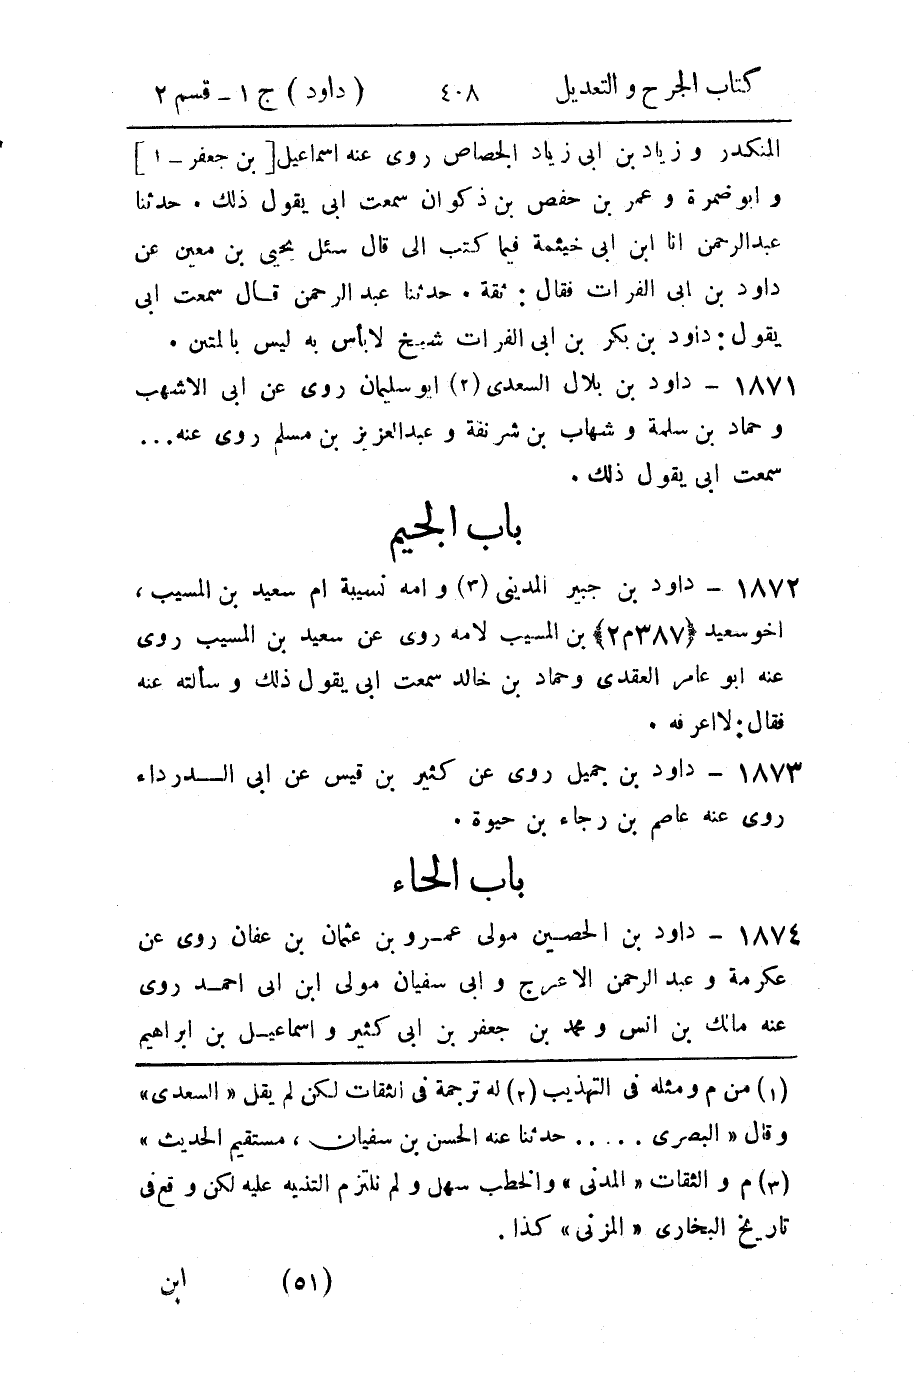 كتاب الجرح و التعديل ٤٠٨ ( داود ) ج ١ - قسم ٢
المنكدر و زياد بن ابى زياد الجصاص روى عنه اسماعيل [ بن جعفر - ١ ]
و ابو ضمرة و عمر بن حفص بن ذكوان سمعت ابى يقول ذلك . حدثنا
عبدالرحمن انا ابن ابى خيثمة فيما كتب الى قال سئل يحيى بن معين عن
داود بن ابى الفرات فقال : ثقة . حدثنا عبد الرحمن قال سمعت ابى
يقول : داود بن بكر بن ابى الفرات شيخ لابأس به ليس بالمتين .
١٨٧١ - داود بن بلال السعدى (٢) ابو سليمان روى عن ابى الاشهب
و حماد بن سلمة و شهاب بن شرنفة و عبدالعزيز بن مسلم روى عنه...
سمعت ابى يقول ذلك .
باب الجيم
١٨٧٢ - داود بن جبير المدينى (٣) و امه نسيبة ام سعيد بن المسيب ،
اخو سعيد ﴿٣٨٧م٢﴾ بن المسيب لامه روى عن سعيد بن المسيب روى
عنه ابو عامر العقدى وحماد بن خالد سمعت ابى يقول ذلك و سألته عنه
فقال : لااعرفه .
١٨٧٣ - داود بن جميل روى عن كثير بن قيس عن ابى الــدرداء
روى عنه عاصم بن رجاء بن حيوة .
باب الحاء
١٨٧٤ - داود بن الحصين مولى عمرو بن عثمان بن عفان روى عن
عكرمة و عبد الرحمن الاعرج و ابى سفيان مولى ابن ابى احمد روى
عنه مالك بن انس و محمد بن جعفر بن ابى كثير و اسماعيل بن ابراهيم
(١) من م و مثله فى التهذيب (٢) له ترجمة فى الثقات لكن لم يقل « السعدى »
و قال « البصرى . . . . . حدثنا عنه الحسن بن سفيان ، مستقيم الحديث »
(٣) م و الثقات « المدنى » والخطب سهل و لم نلتزم التنبيه عليه لكن وقع فى
تاريخ البخارى « المزنى » كذا .
(٥١) ابن